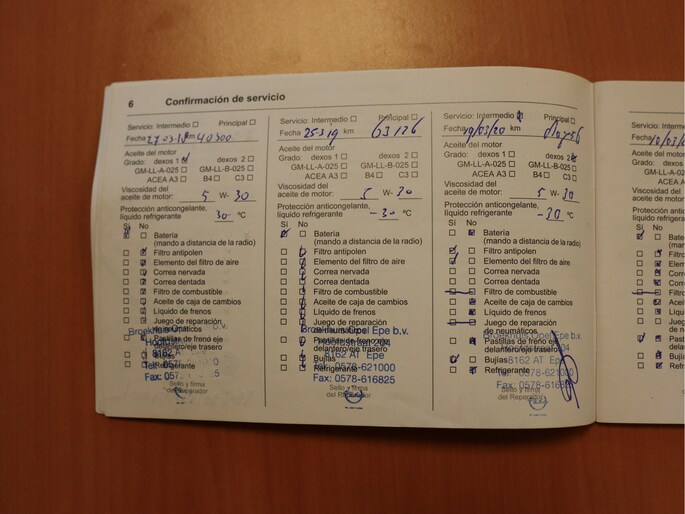 6 Confirmación de servicio
Servicio: Intermedio Principal
Fecha 27-03-18 km 40300
Aceite del motor
Grado: dexos 1 dexos 2
GM-LL-A-025 GM-LL-B-025
ACEA A3 B4 C3
Viscosidad del
aceite de motor: 5 W- 30
Protección anticongelante,
líquido refrigerante 30 °C
Sí No
Batería
(mando a distancia de la radio)
Filtro antipolen
Elemento del filtro de aire
Correa nervada
Correa dentada
Filtro de combustible
Aceite de caja de cambios
Líquido de frenos
Juego de reparación
de neumáticos
Pastillas de freno eje
delantero/eje trasero
Bujías
Refrigerante
8162 A
Fax: 057
Sello y firma
del Reparador
Servicio: Intermedio Principal
Fecha 25-3-19 km 63126
Aceite del motor
Grado: dexos 1 dexos 2
GM-LL-A-025 GM-LL-B-025
ACEA A3 B4 C3
Viscosidad del
aceite de motor: 5 W- 30
Protección anticongelante,
líquido refrigerante -30 °C
Sí No
Batería
(mando a distancia de la radio)
Filtro antipolen
Elemento del filtro de aire
Correa nervada
Correa dentada
Filtro de combustible
Aceite de caja de cambios
Líquido de frenos
Juego de reparación
de neumáticos
Broekhuis Opel Epe b.v.
Pastillas de freno eje
delantero/eje trasero
Hoofdstraat 204
8162 AT Epe
Bujías
Tel: 0578-621000
Refrigerante
Fax: 0578-616825
Sello y firma
del Reparador
Servicio: Intermedio Principal
Fecha 19/03/20 km
Aceite del motor
Grado: dexos 1 dexos 2
GM-LL-A-025 GM-LL-B-025
ACEA A3 B4 C3
Viscosidad del
aceite de motor: 5 W- 30
Protección anticongelante,
líquido refrigerante -30 °C
Sí No
Batería
(mando a distancia de la radio)
Filtro antipolen
Elemento del filtro de aire
Correa nervada
Correa dentada
Filtro de combustible
Aceite de caja de cambios
Líquido de frenos
Juego de reparación
de neumáticos
Broekhuis Opel Epe b.v.
Pastillas de freno eje
delantero/eje trasero
Hoofdstraat 204
8162 AT Epe
Bujías
Tel: 0578-621000
Refrigerante
Fax: 0578-616825
Sello y firma
del Reparador
Servicio: In
Fecha
Aceite del m
Grado:
GM-
Viscosidad
aceite de m
Protección
líquido refri
Sí No
Bate
(man
Filtro
Elem
Corre
Corre
Filtro
Aceit
Líqui
Jueg
de n
Past
dela
Bují
Refr